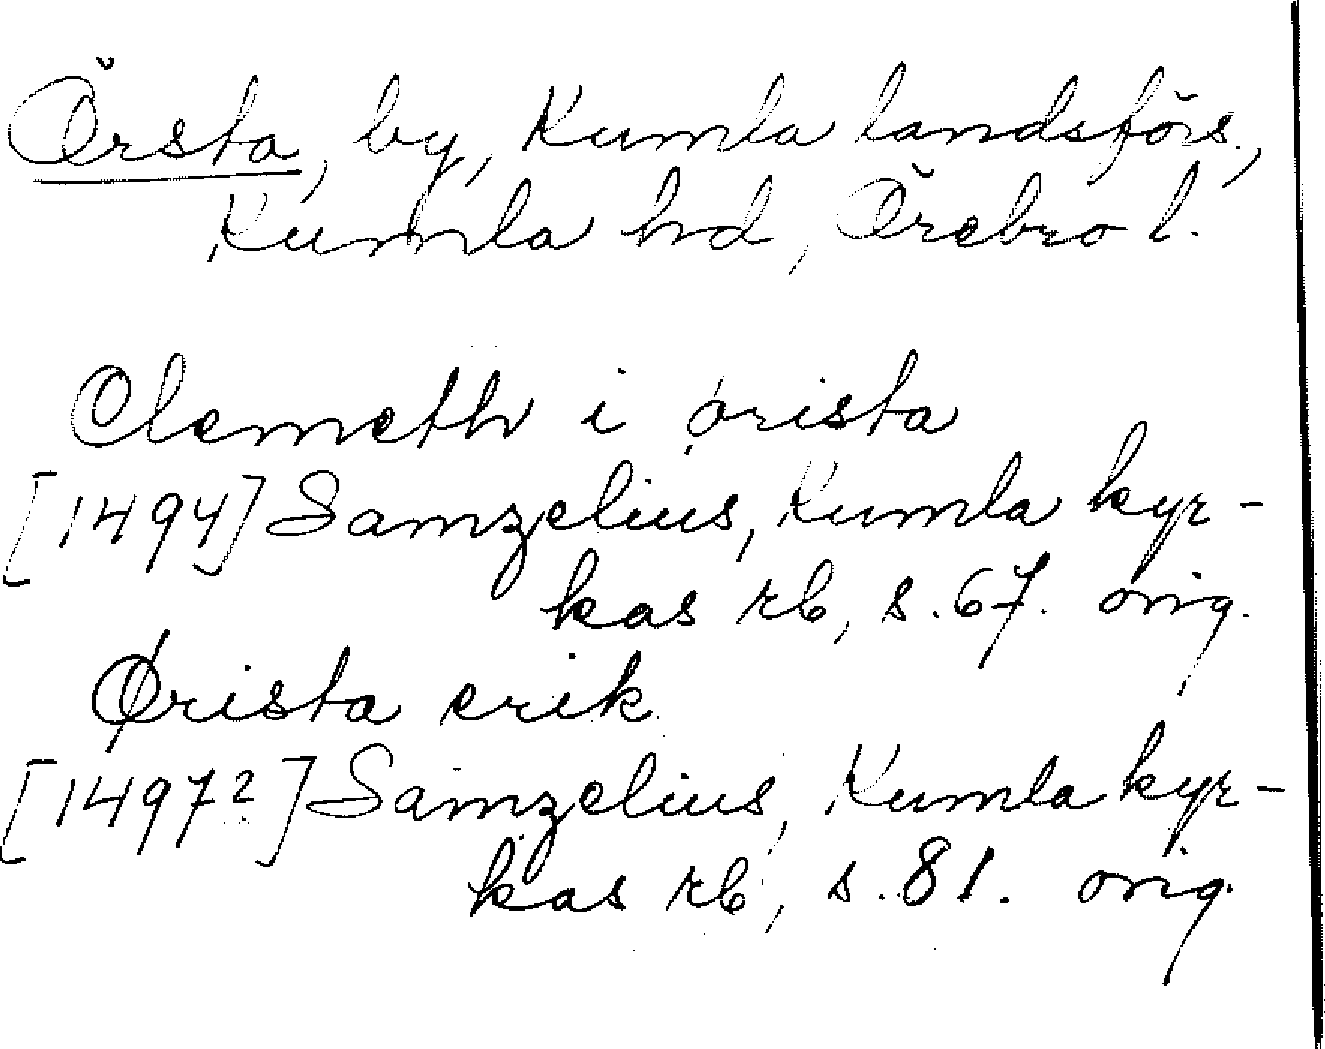 Örsta, by, Kumla landsförs.,
Kumla hd, Örebro l.
Clemeth i ørista
[1494] Samzelius, Kumla kyr-
kas rb, s. 67. orig.
Ørista erik
[1497?] Samzelius, Kumla kyr-
kas rb, s. 81. orig.